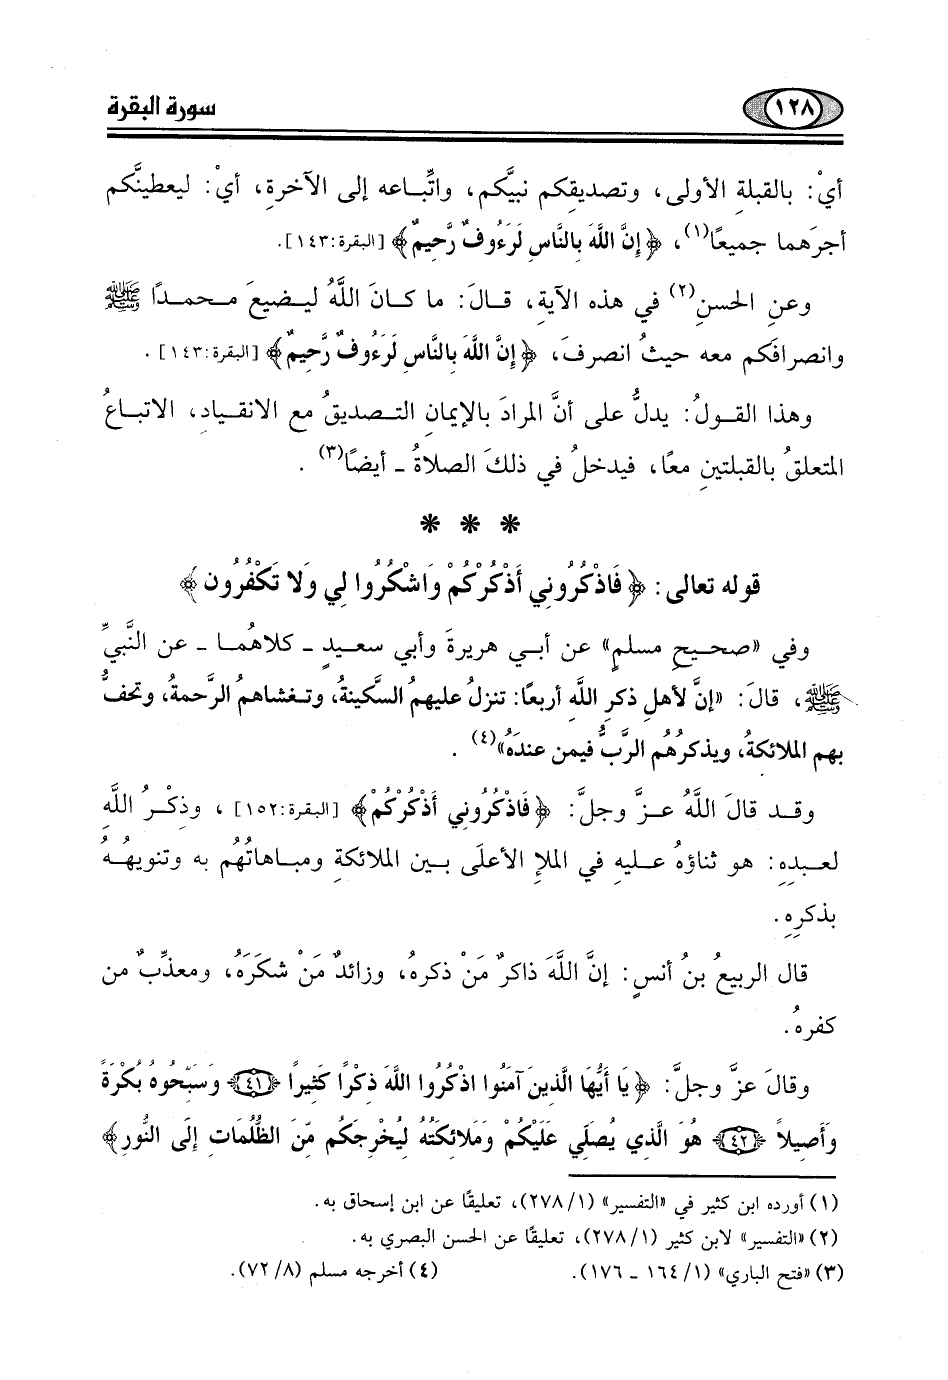 ١٢٨ سورة البقرة
أيْ: بالقبلةِ الأولى، وتصديقكم نبيَّكم، واتِّباعه إلى الآخرةِ، أيْ: ليعطينَّكم
أجرَهما جميعًا(١)، ﴿إِنَّ اللَّهَ بِالنَّاسِ لَرَءُوفٌ رَّحِيمٌ﴾ [البقرة:١٤٣].
وعنِ الحسنِ(٢) في هذه الآيةِ، قالَ: ما كانَ اللَّهُ ليضيعَ محمدًا ﷺ
وانصرافَكم معه حيثُ انصرفَ، ﴿إِنَّ اللَّهَ بِالنَّاسِ لَرَءُوفٌ رَّحِيمٌ﴾ [البقرة:١٤٣] .
وهذا القولُ: يدلُّ على أنَّ المرادَ بالإيمانِ التصديقُ مع الانقيادِ، الاتباعُ
المتعلقُ بالقبلتينِ معًا، فيدخلُ في ذلكَ الصلاةُ ـ أيضًا(٣) .
* * *
قوله تعالى: ﴿فَاذْكُرُونِي أَذْكُرْكُمْ وَاشْكُرُوا لِي وَلا تَكْفُرُونِ﴾
وفي «صحيحِ مسلمٍ» عن أبي هريرةَ وأبي سعيدٍ ـ كلاهُما ـ عنِ النَّبيِّ
ﷺ، قالَ: «إنَّ لأهلِ ذكرِ اللَّهِ أربعًا: تنزلُ عليهمُ السَّكينةُ، وتغشاهمُ الرَّحمةُ، وتحفُّ
بهم الملائكةُ، ويذكرُهُم الرَّبُّ فيمن عندَهُ»(٤) .
وقد قالَ اللَّهُ عزَّ وجلَّ: ﴿فَاذْكُرُونِي أَذْكُرْكُمْ﴾ [البقرة:١٥٢] ، وذكْرُ اللَّهِ
لعبدِهِ: هو ثناؤهُ عليهِ في الملإِ الأعلَى بينِ الملائكةِ ومباهاتُهُم به وتنويهُهُ
بذكرِهِ.
قال الربيعُ بنُ أنسٍ: إنَّ اللَّهَ ذاكرٌ مَنْ ذكرهُ، وزائدٌ مَنْ شكَرَهُ، ومعذِّبٌ من
كفرهُ.
وقالَ عزَّ وجلَّ: ﴿يَا أَيُّهَا الَّذِينَ آمَنُوا اذْكُرُوا اللَّهَ ذِكْرًا كَثِيرًا ﴿٤١﴾ وَسَبِّحُوهُ بُكْرَةً
وَأَصِيلاً ﴿٤٢﴾ هُوَ الَّذِي يُصَلِّي عَلَيْكُمْ وَمَلائِكَتُهُ لِيُخْرِجَكُم مِّنَ الظُّلُمَاتِ إِلَى النُّورِ﴾
(١) أورده ابن كثير في «التفسير» (١/ ٢٧٨)، تعليقًا عن ابن إسحاق به.
(٢) «التفسير» لابن كثير (١/ ٢٧٨)، تعليقًا عن الحسن البصري به.
(٣) «فتح الباري» (١/ ١٦٤ ـ ١٧٦). (٤) أخرجه مسلم (٨/ ٧٢).